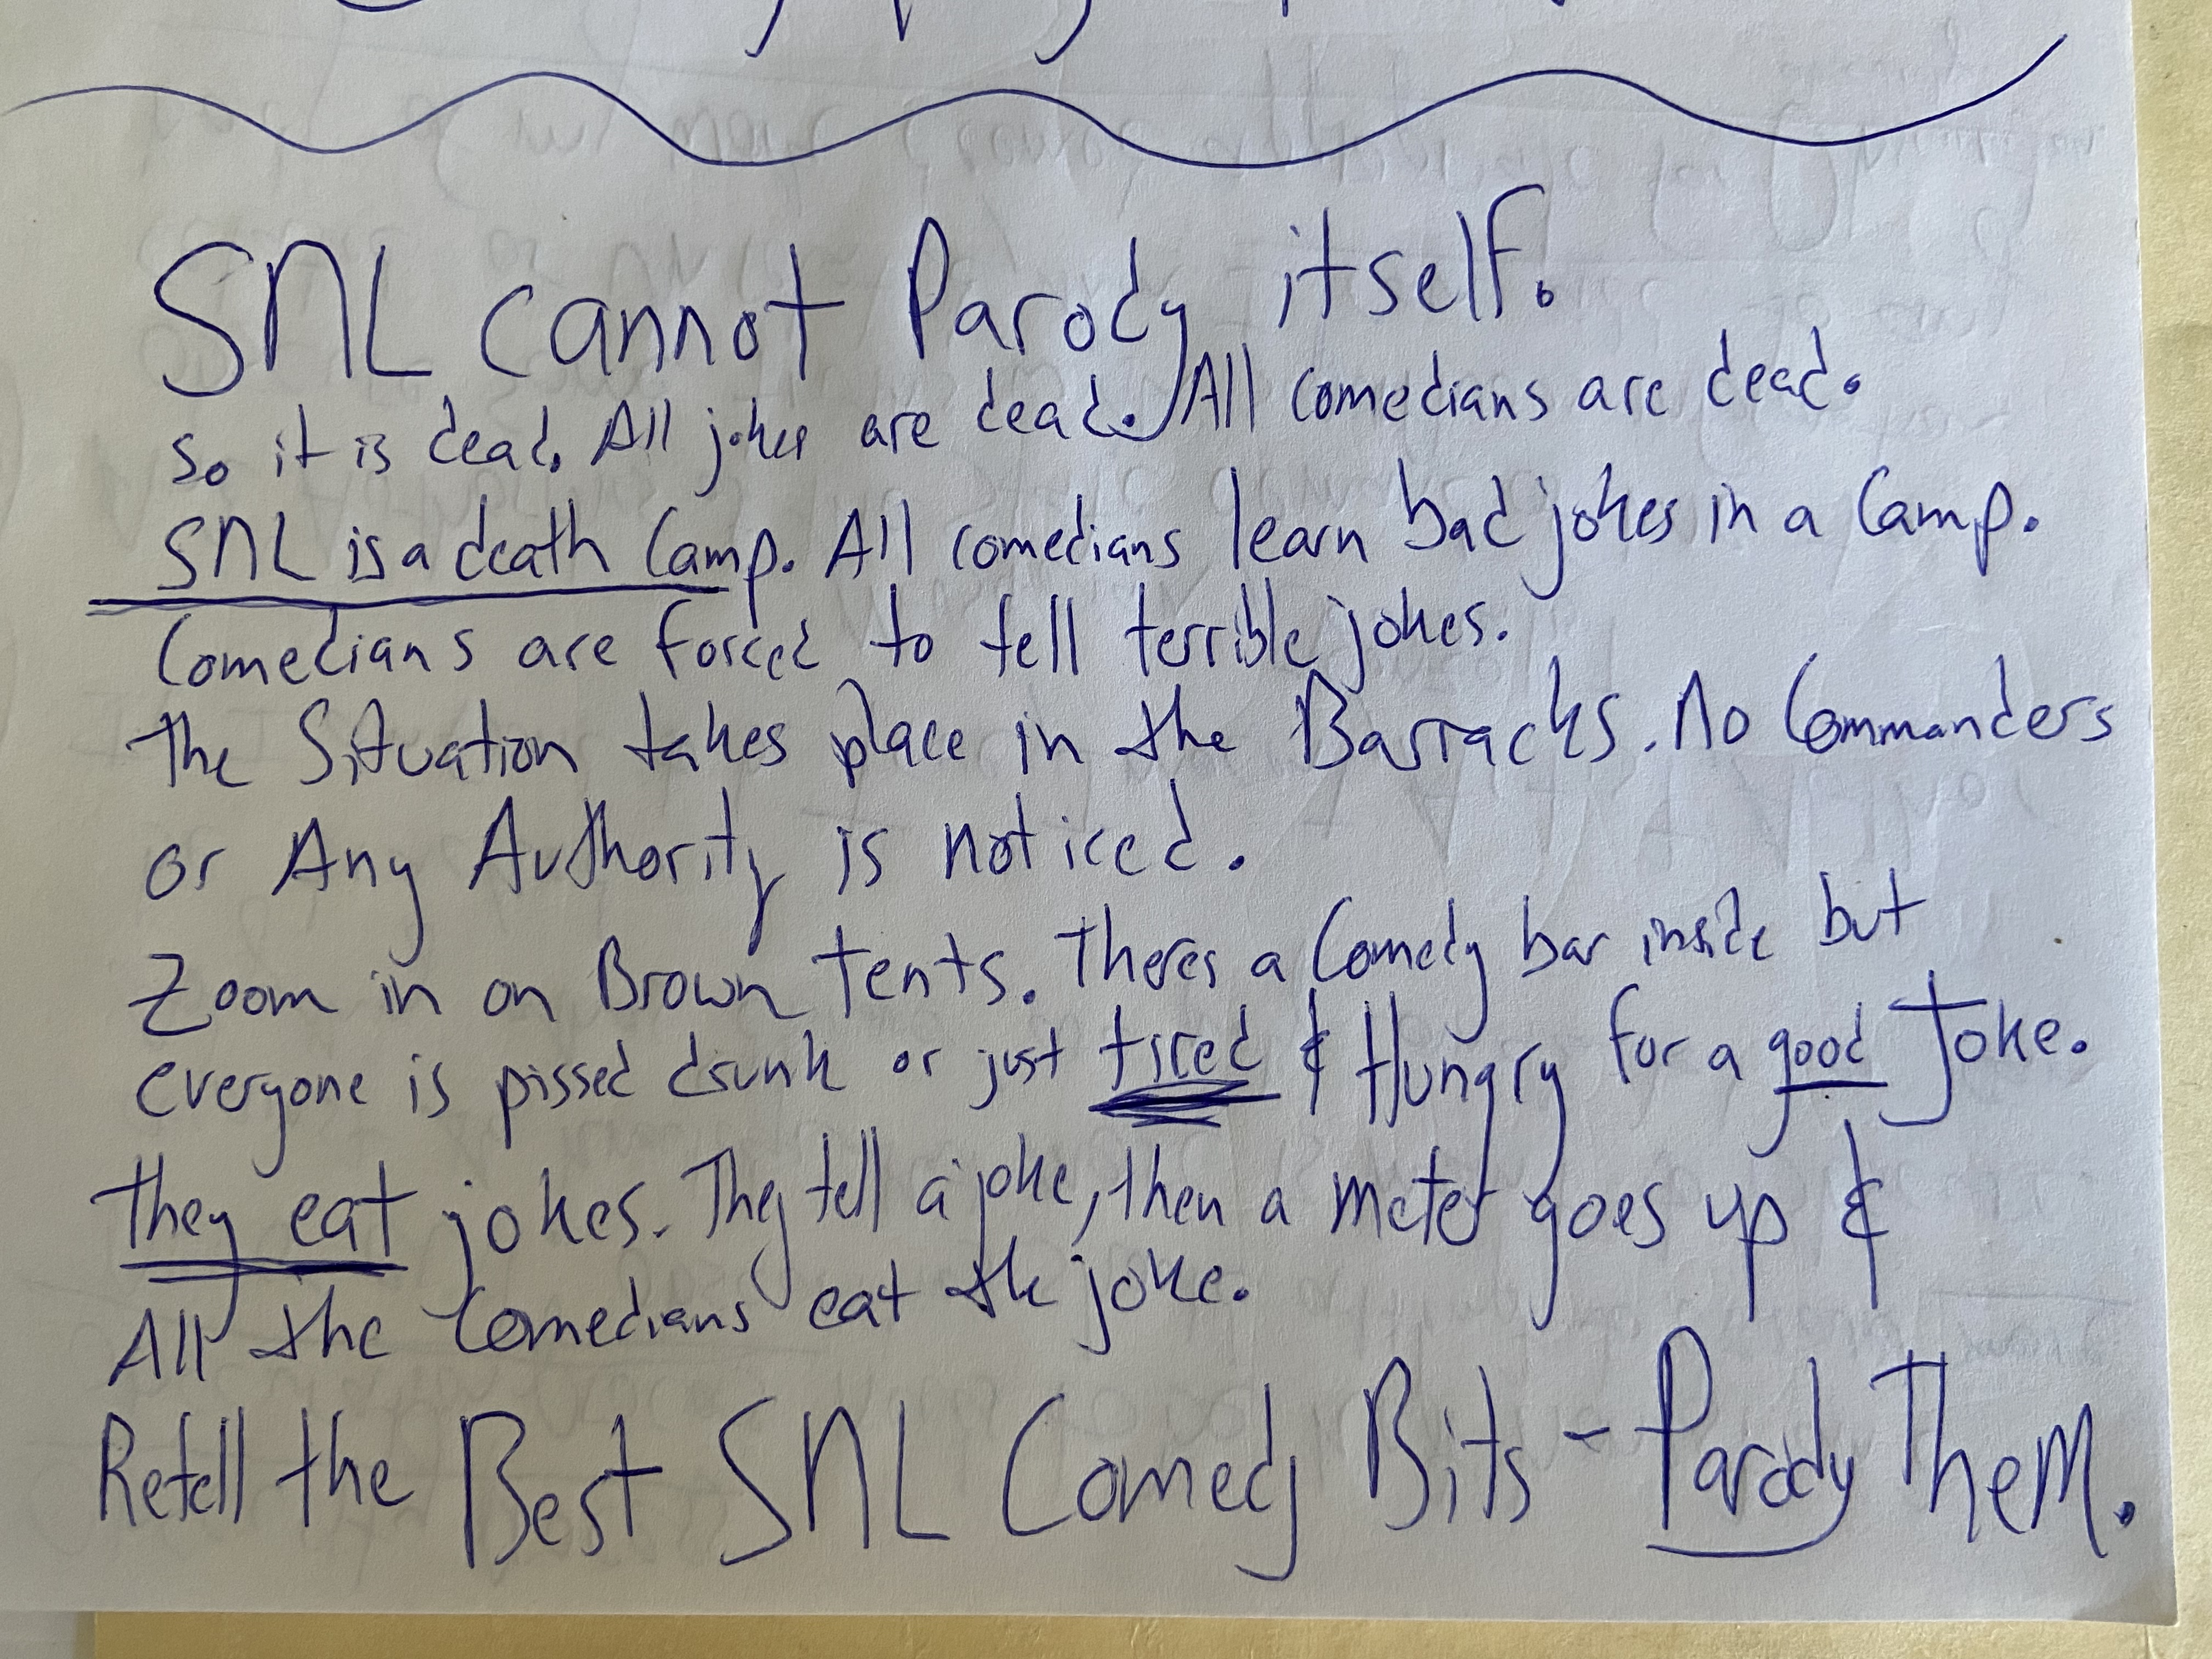 SNL Cannot Parody itself.
so it is dead. All jokes are dead. All comedians are dead.
SNL is a death Camp. All comedians learn bad jokes in a Camp.
Comedians are forced to tell terrible jokes.
The Situation takes place in the Barracks. No Commanders
or Any Authority is noticed.
Zoom in on Brown Tents. Theres a Comedy bar inside but
everyone is pissed drunk or just tired & Hungry for a good Joke.
They eat jokes. They tell a joke, then a metej goes up &
All the Comedians eat the joke.
Retell the Best SNL Comedy Bits - Pardy Them.